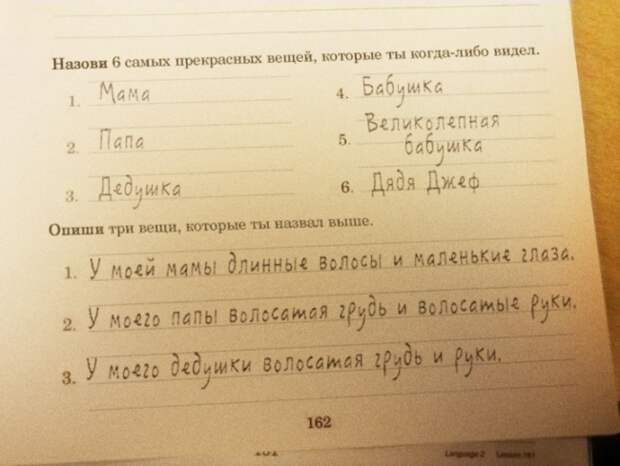 Назови 6 самых прекрасных вещей, которые ты когда-либо видел.
1. Мама
2. Папа
3. Дедушка
4. Бабушка
5. Великолепная
бабушка
6. Дядя Джеф
Опиши три вещи, которые ты назвал выше.
1. У моей мамы длинные волосы и маленькие глаза.
2. У моего папы волосатая грудь и волосатые руки.
3. У моего дедушки волосатая грудь и руки.
162
Language 2 Lesson 161